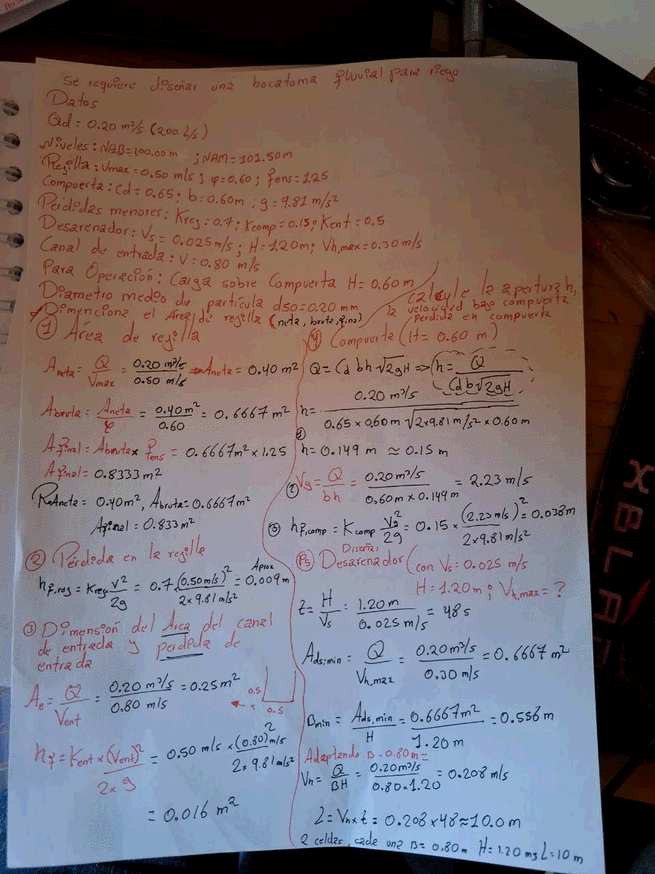 Se requiere diseñar una bocatoma fluvial para riego
Datos
Qd = 0.20 m³/s (200 L/s)
Niveles: NAB=100.00m ; NAM=101.50m
Rejilla: Vmax=0.50 m/s ; φ=0.60 ; fens=1.25
Compuerta: Cd=0.65; b=0.60m ; g=9.81 m/s²
Perdidas menores: Kreg=0.7; Kcomp=0.15; Kent=0.5
Desarenador: Vs=0.025m/s ; H=1.20m; Vh,max=0.30 m/s
Canal de entrada: V=0.80 m/s
Para Operación: Carga sobre Compuerta H=0.60m
Diametro medio de partícula d50=0.20 mm
Dimencione el Area de regilla (neta, bruta, final)
① Área de regilla
Aneta = Q/Vmax = 0.20 m³/s / 0.50 m/s → Aneta = 0.40 m²
Abruta = Aneta/φ = 0.40m²/0.60 = 0.6667 m²
Afinal = Abruta x fens = 0.6667m² x 1.25
Afinal = 0.8333 m²
R Aneta = 0.40m², Abruta=0.6667m²
Afinal = 0.833m²
② Pérdida en la regilla
hf,reg = Kreg V²/2g = 0.7 (0.50 m/s)²/2x9.81 m/s² = 0.009 m Aprox
③ Dimensión del Área del canal
de entrada y perdida de
entrada
Ae = Q/Vent = 0.20 m³/s / 0.80 m/s = 0.25m²
0.5
0.5
hf = Kent x (Vent)²/2xg = 0.50 m/s x (0.80)² m/s / 2x9.81m/s²
= 0.016 m²
calcule la apertura h,
la velocidad bajo compuerta
perdida en compuerta
④ Compuerta (H=0.60 m)
Q = Cd b h √2gH ⇒ h = Q / Cd b √2gH
h = 0.20 m³/s / 0.65 x 0.60m √2x9.81 m/s² x 0.60m
① h = 0.149 m ≈ 0.15 m
② Vg = Q/bh = 0.20 m³/s / 0.60m x 0.149m = 2.23 m/s
③ hf,comp = Kcomp Vg²/2g = 0.15 x (2.23 m/s)²/2x9.81 m/s² = 0.038m
Diseña:
P5 Desarenador (con Vs=0.025 m/s
H=1.20m ; Vh,max=?
t = H/Vs = 1.20m/0.025 m/s = 48s
Ads,min = Q/Vh,max = 0.20m³/s / 0.30 m/s = 0.6667 m²
Bmin = Ads,min/H = 0.6667m²/1.20m = 0.556m
Adaptando B=0.80m =
Vh = Q/BH = 0.20m³/s / 0.80x1.20 = 0.208 m/s
L = Vh x t = 0.208x48 ≈ 10.0m
2 celdas, cada una B=0.80m H=1.20m y L=10m
XBLA